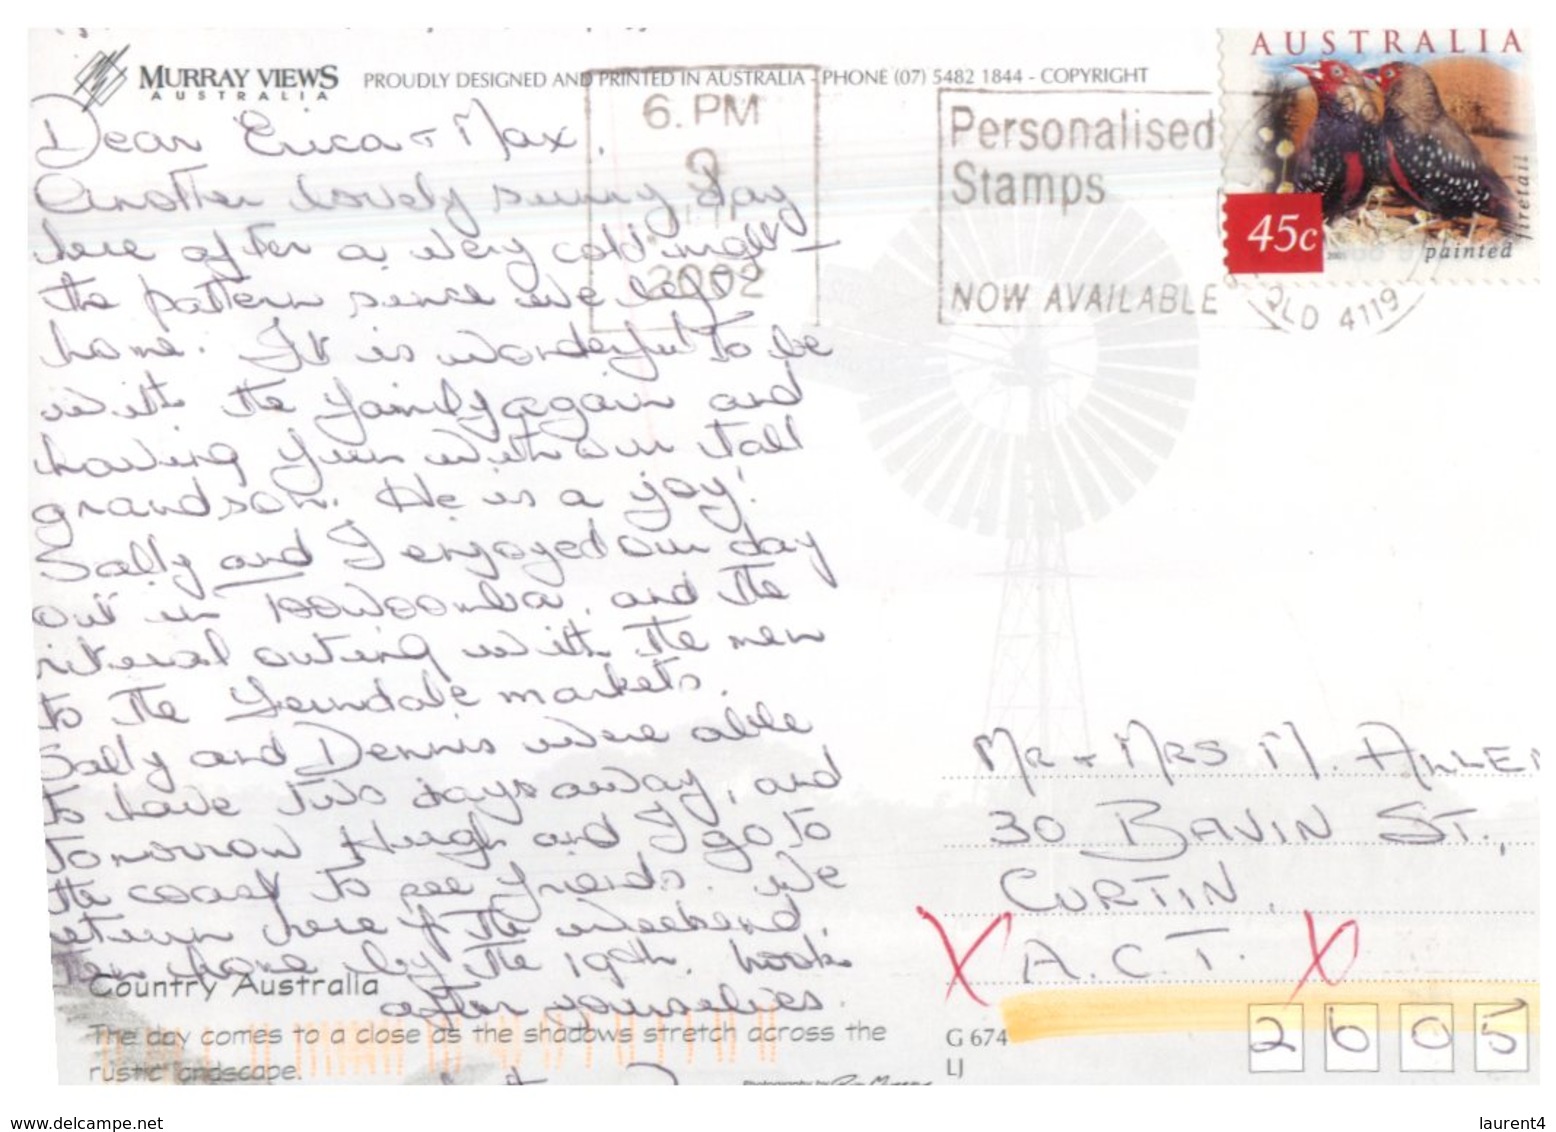 MURRAY VIEWS
AUSTRALIA
PROUDLY DESIGNED AND PRINTED IN AUSTRALIA - PHONE (07) 5482 1844 - COPYRIGHT
AUSTRALIA
45c
painted
firetail
6. PM
9
2002
Personalised
Stamps
NOW AVAILABLE
QLD 4119
Dear Erica + Max,
Another lovely sunny day
here after a very cold night -
the pattern since we left
home. It is wonderful to be
with the family again and
having fun with our tall
grandson. He is a joy!
Sally and I enjoyed our day
out in Toowoomba, and the
ritual outing with the men
to the markets.
Sally and Dennis were able
to have two days away, and
tomorrow Hugh and I go to
the coast to see friends. We
return here for the weekend,
then home by the 19th. Look
after yourselves.
Country Australia
The day comes to a close as the shadows stretch across the
rustic landscape.
Photography by
MR + MRS M. ALLEN
30 BAVIN ST.,
CURTIN.
X A.C.T. X
G 674
LJ
2605
www.delcampe.net
laurent4